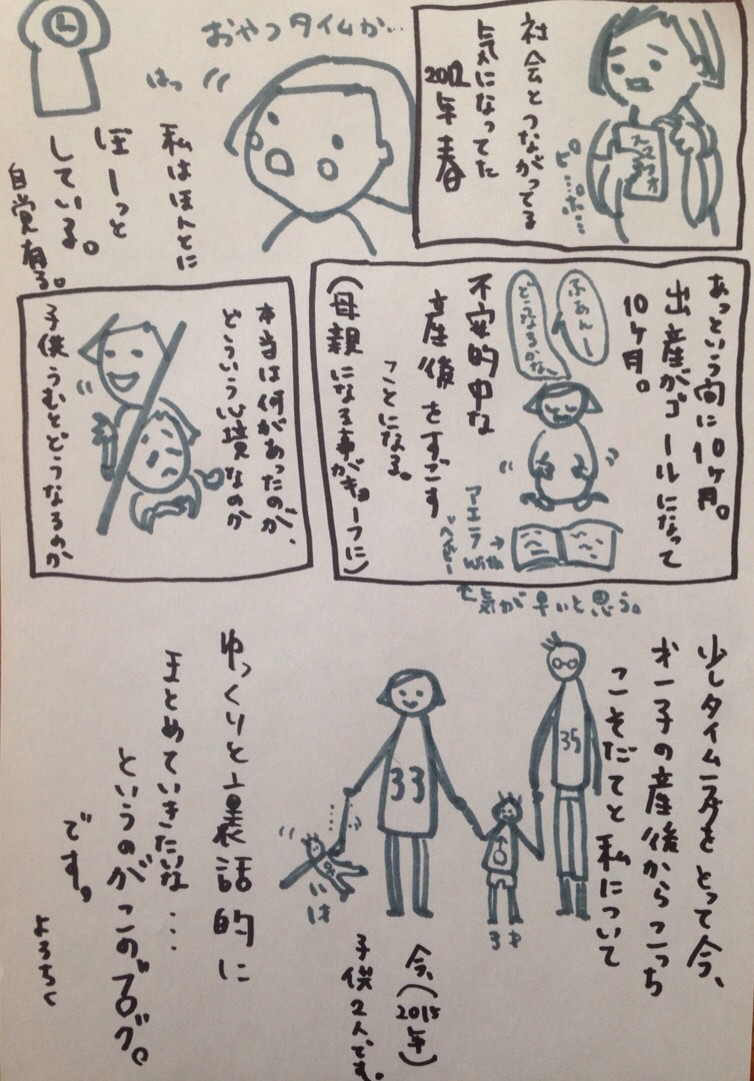 社会とつながってる
気になってた
2012年 春
ピ…ポ…
おやつタイムか…
はっ
私はほんとに
ぼーっと
している。
自覚有る。
あっという間に10ヶ月。
出産がゴールになって
10ヶ月。
ふあんー
どうなるかなぁ
不安的中な
産後をすごす
ことになる。
(母親になる事がキョーフに)
アエラwith
ベビー
気が早いと思う。
本当は何があったのか、
どういう心境なのか
子供うむとどうなるのか
少しタイム
をとって今、
才一子の産後からこっち
こそだてと私について
35
33
3才
1才
今、(2015年)
子供2人です。
ゆっくりと裏話的に
まとめていきたいな…
というのがこのブログ。
です。
よろちく